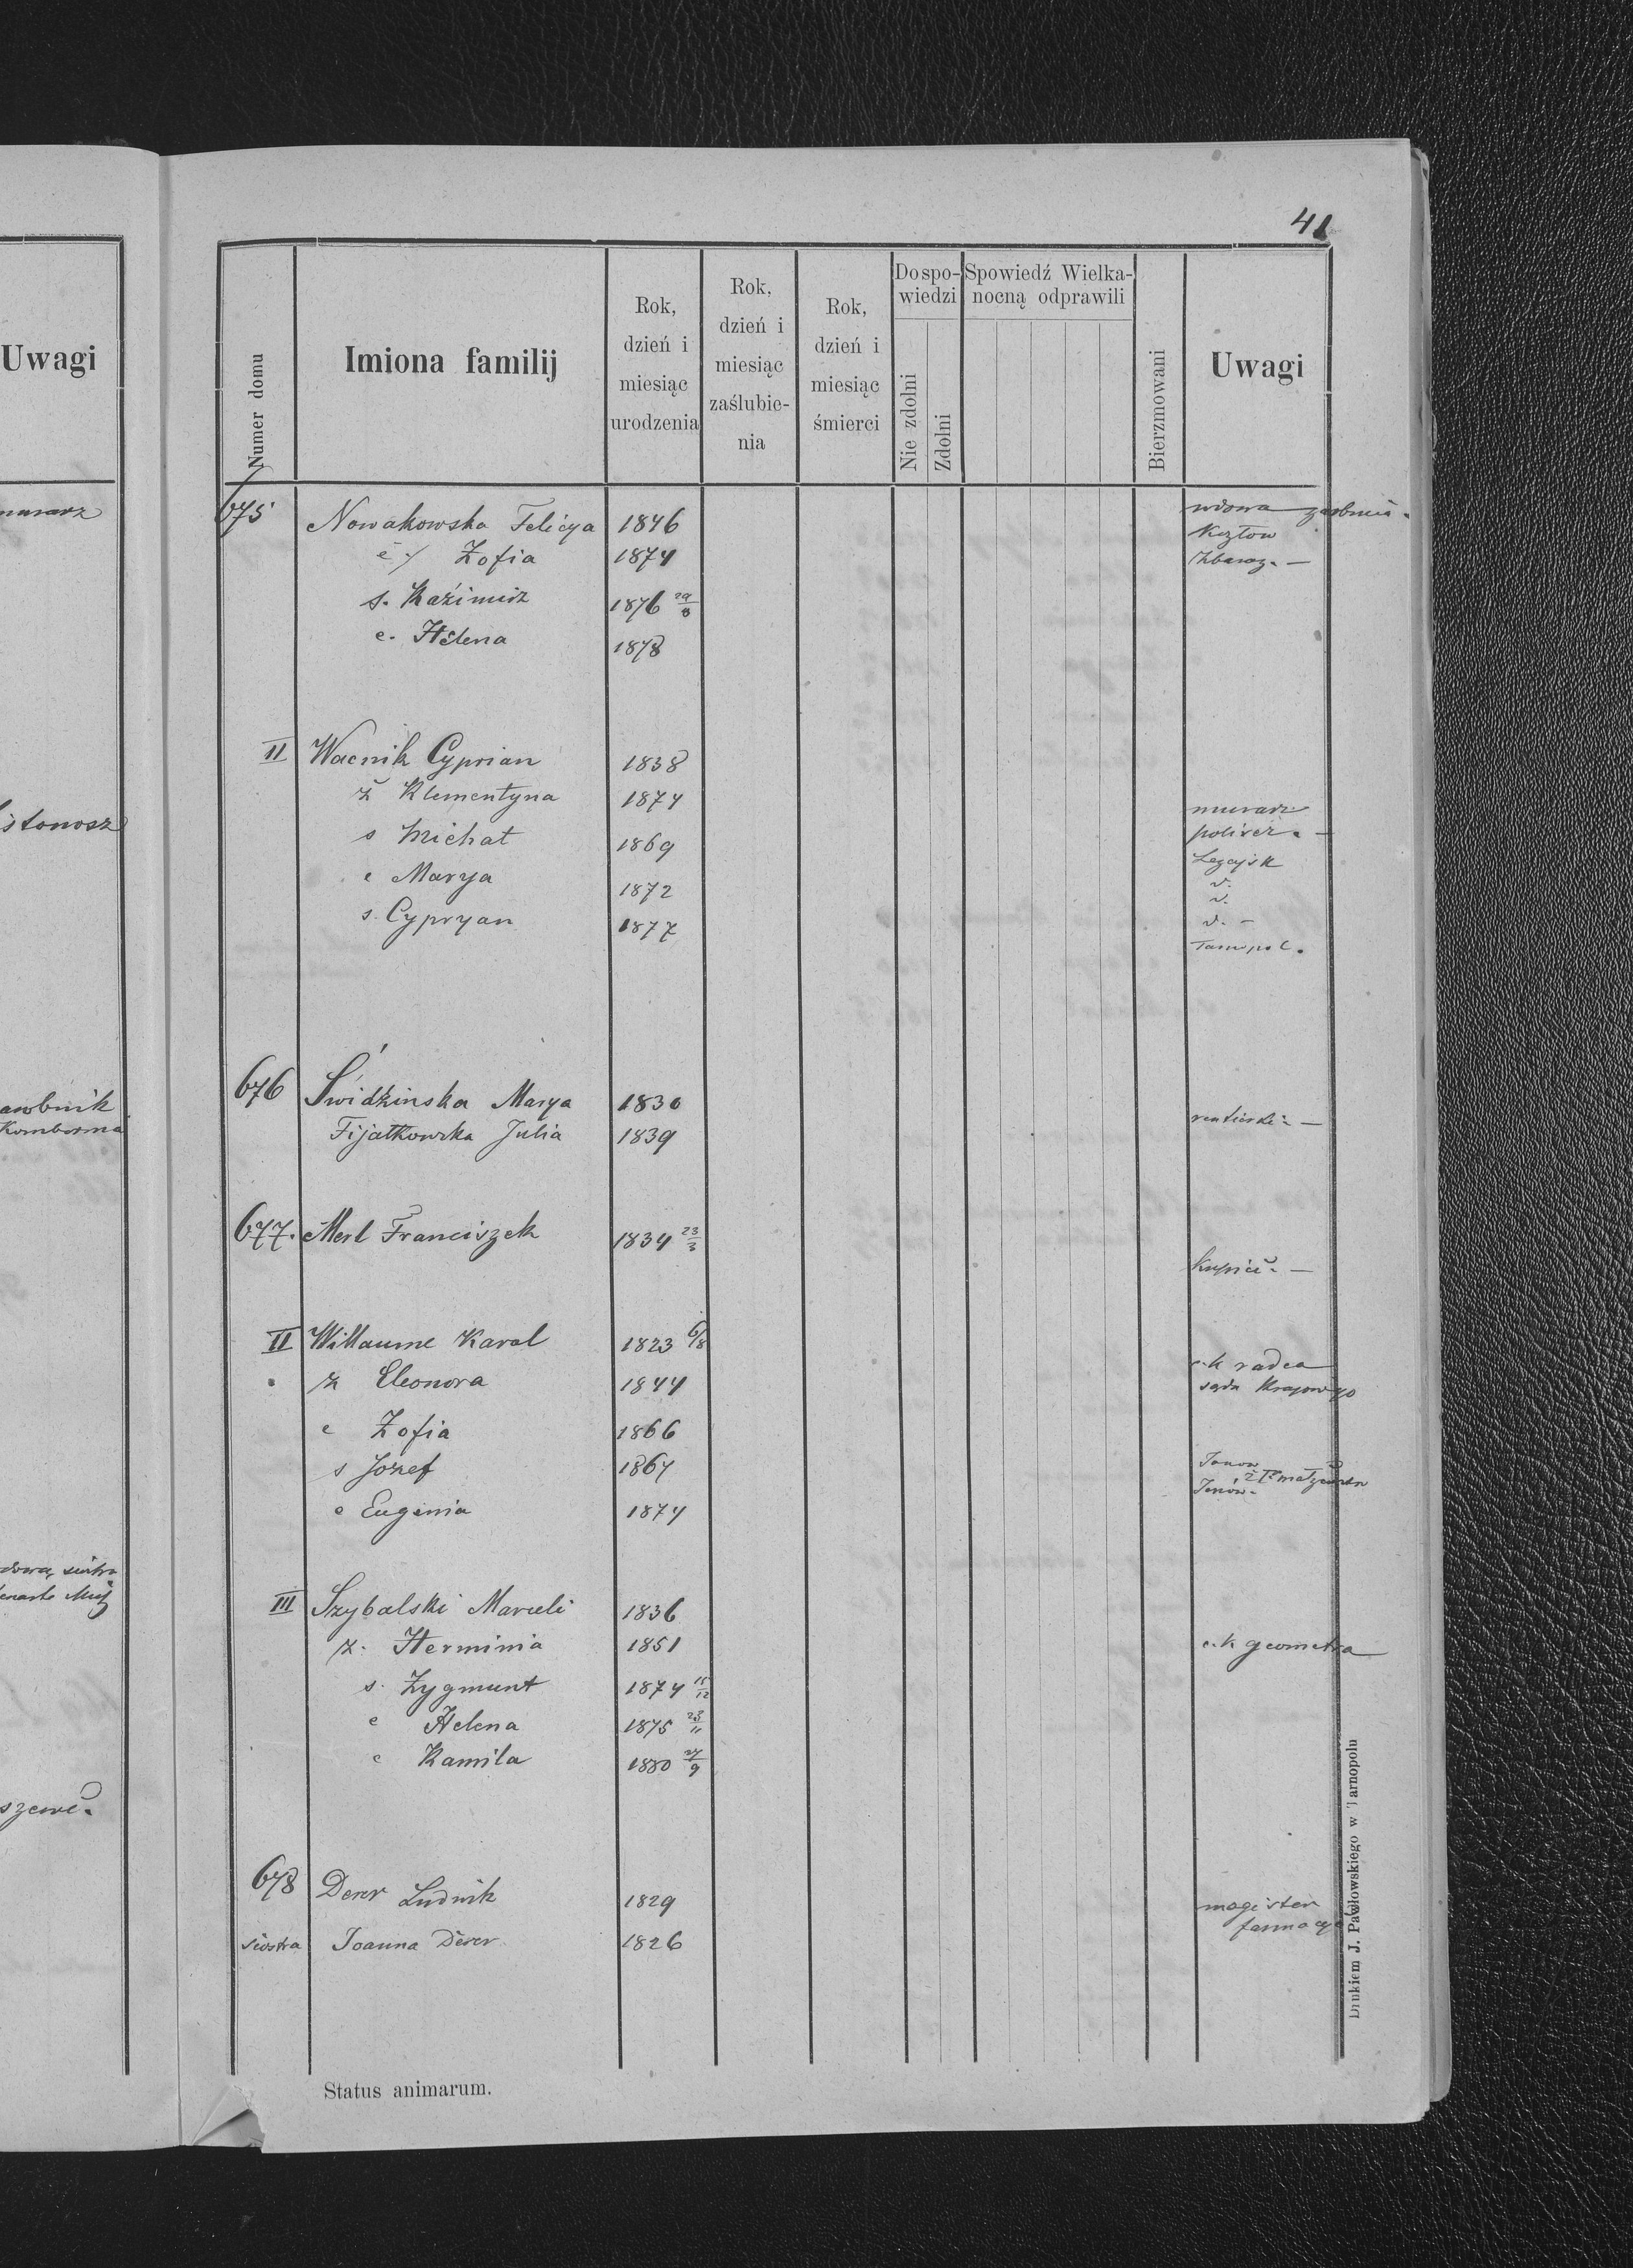 41
Uwagi
Numer domu
Imiona familij
Rok, dzień i miesiąc urodzenia
Rok, dzień i miesiąc zaślubienia
Rok, dzień i miesiąc śmierci
Do spowiedzi
Nie zdolni
Zdolni
Spowiedź Wielkanocną odprawili
Bierzmowani
Uwagi
675 Nowakowska Felicya 1846 wdowa
Zofia 1874 Kozłow
s. Kaźimirz 1876 29/8 Zbaraz. —
c. Helena 1878
II Wacnik Cyprian 1838
ż Klementyna 1874 murarz
s Michał 1869
c Marya 1872 Leżajsk
s. Cypryan 1877
Tarnopol.
676 Świdzinska Marya 1830
Fijałkowska Julia 1839
677. Merl Franciszek 1834 23/3
kupiec. —
II Willaume Karol 1823 6/8 c.k radca
ż Eleonora 1844 sądu Krajowego
c Zofia 1866
s Józef 1867 Janow
c Eugenia 1874
III Szybalski Marceli 1836
ż. Herminia 1851 c.k geometra
s. Zygmunt 1874 15/12
c Helena 1875 23/11
c Kamila 1880 27/9
678 Derer Ludwik 1829 magister
siostra Joanna Derer 1826
Status animarum.
Drukiem J. Pawłowskiego w Tarnopolu
Uwagi
listonosz